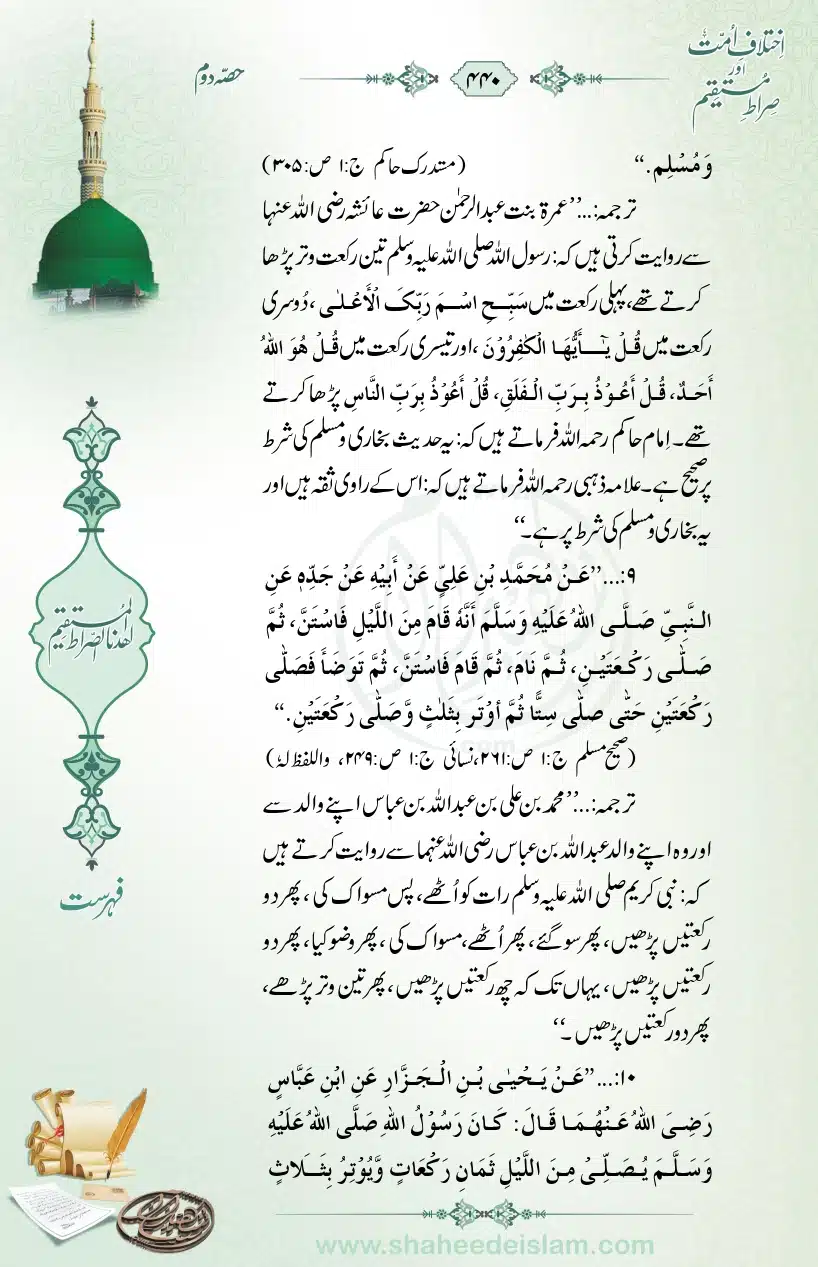 اِختلافِ اُمّت
اور
صِراطِ مُستقیم
۴۴۰
حصّہ دوم
وَمُسْلِم.“ (مستدرک حاکم ج:۱ ص:۳۰۵)
ترجمہ:...’’عمرۃ بنت عبدالرحمٰن حضرت عائشہ رضی اللہ عنہا
سے روایت کرتی ہیں کہ: رسول اللہ صلی اللہ علیہ وسلم تین رکعت وتر پڑھا
کرتے تھے، پہلی رکعت میں سَبِّحِ اسْمَ رَبِّکَ الْأَعْلٰی، دُوسری
رکعت میں قُلْ یٰٓأَیُّھَا الْکٰفِرُوْنَ، اور تیسری رکعت میں قُلْ ھُوَ اللهُ
أَحَدٌ، قُلْ أَعُوْذُ بِرَبِّ الْفَلَقِ، قُلْ أَعُوْذُ بِرَبِّ النَّاسِ پڑھا کرتے
تھے۔ اِمام حاکم رحمہ اللہ فرماتے ہیں کہ: یہ حدیث بخاری و مسلم کی شرط
پر صحیح ہے۔ علامہ ذہبی رحمہ اللہ فرماتے ہیں کہ: اس کے راوی ثقہ ہیں اور
یہ بخاری و مسلم کی شرط پر ہے۔‘‘
۹:...’’عَنْ مُحَمَّدِ بْنِ عَلِيٍّ عَنْ أَبِيْهِ عَنْ جَدِّهٖ عَنِ
النَّبِيِّ صَلَّى اللهُ عَلَيْهِ وَسَلَّمَ أَنَّهٗ قَامَ مِنَ اللَّيْلِ فَاسْتَنَّ، ثُمَّ
صَلّٰى رَكْعَتَيْنِ، ثُمَّ نَامَ، ثُمَّ قَامَ فَاسْتَنَّ، ثُمَّ تَوَضَأَ فَصَلّٰى
رَكْعَتَيْنِ حَتّٰى صلّٰى سِتًّا ثُمَّ أوْتَر بِثَلٰثٍ وَّصَلّٰى رَكْعَتَيْنِ.‘‘
(صحیح مسلم ج:۱ ص:۲۶۱، نسائی ج:۱ ص:۲۴۹، واللفظ لہٗ)
ترجمہ:...’’محمد بن علی بن عبداللہ بن عباس اپنے والد سے
اور وہ اپنے والد عبداللہ بن عباس رضی اللہ عنہما سے روایت کرتے ہیں
کہ: نبی کریم صلی اللہ علیہ وسلم رات کو اُٹھے، پس مسواک کی، پھر دو
رکعتیں پڑھیں، پھر سو گئے، پھر اُٹھے، مسواک کی، پھر وضو کیا، پھر دو
رکعتیں پڑھیں، یہاں تک کہ چھ رکعتیں پڑھیں، پھر تین وتر پڑھے،
پھر دو رکعتیں پڑھیں۔‘‘
۱۰:...’’عَنْ يَحْيٰى بْنِ الْجَزَّارِ عَنِ ابْنِ عَبَّاسٍ
رَضِيَ اللهُ عَنْهُمَا قَالَ: كَانَ رَسُوْلُ اللهِ صَلَّى اللهُ عَلَيْهِ
وَسَلَّمَ يُصَلِّيْ مِنَ اللَّيْلِ ثَمَانِ رَكْعَاتٍ وَّيُوْتِرُ بِثَلَاثٍ
اھدنا الصّراط المُستقیم
فہرست
www.shaheedeislam.com